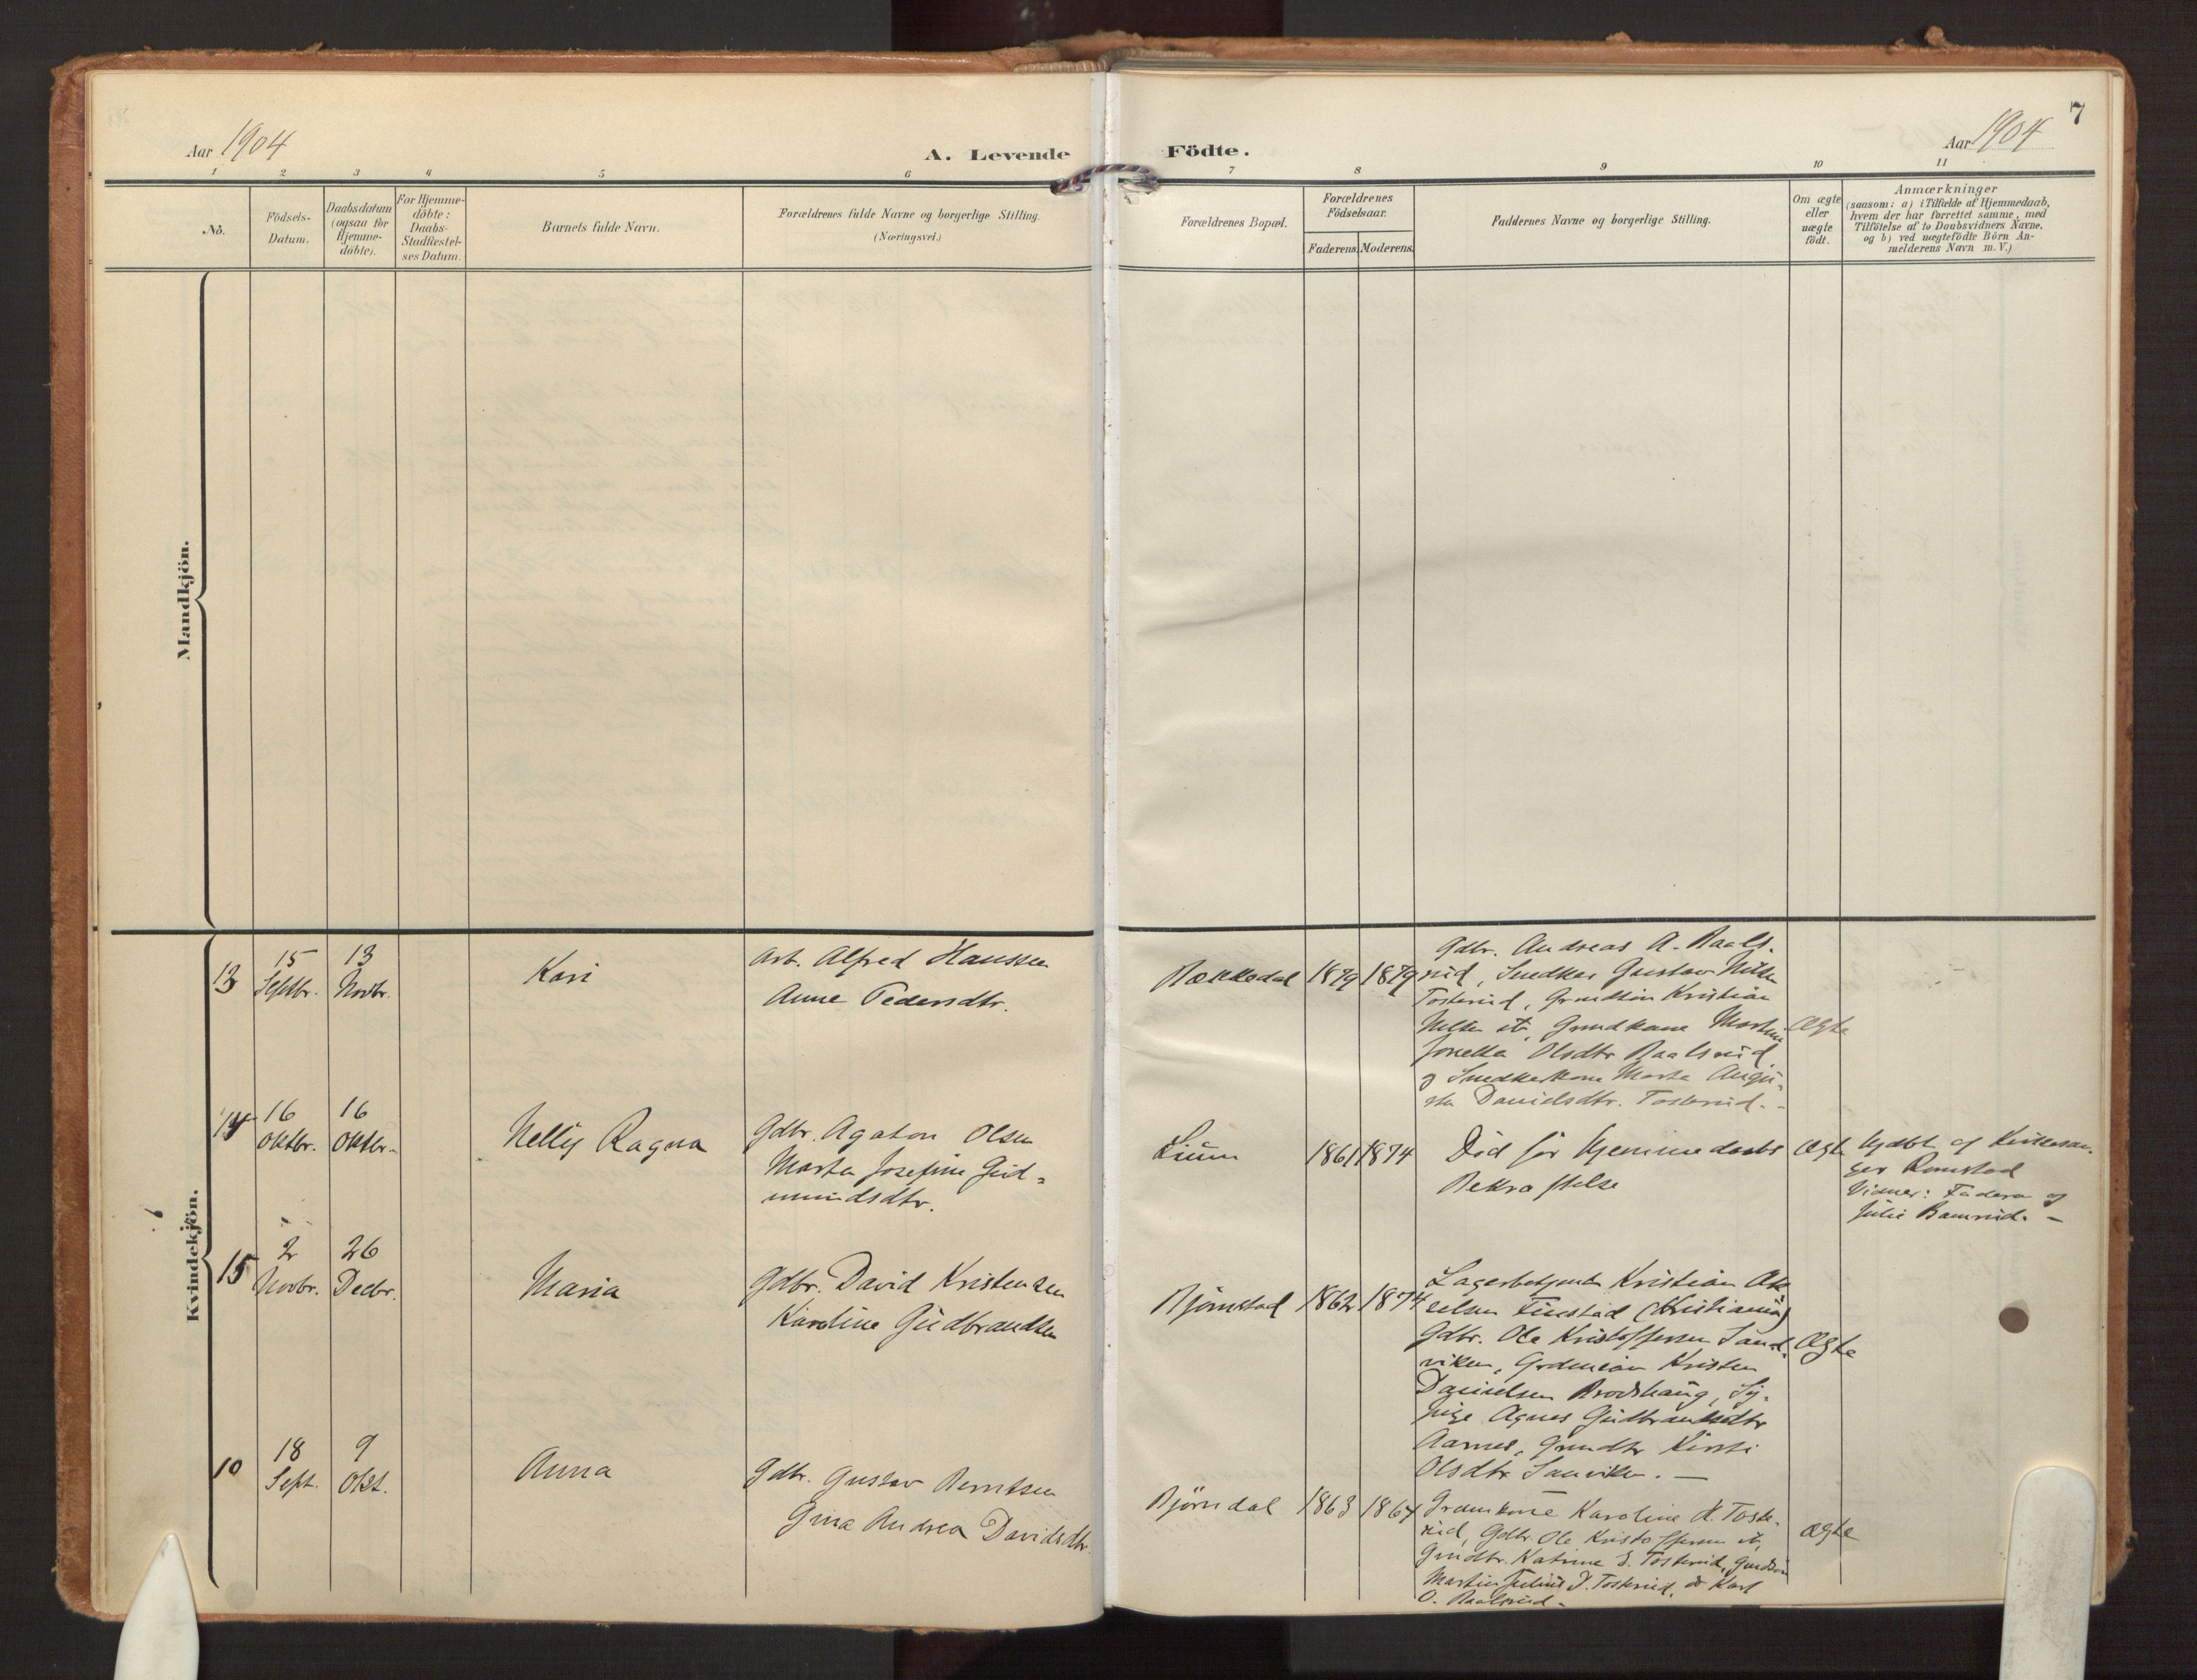 7
Aar 1904
A. Levende Födte.
Aar 1904
1 2 3 4 5 6 7 8 9 10 11
No.
Födsels-
Datum.
Daabsdatum
(ogsaa for
Hjemme-
döbte).
For Hjemme-
döbte:
Daabs-
Stadfæstel-
ses Datum.
Barnets fulde Navn.
Forældrenes fulde Navne og borgerlige Stilling.
(Næringsvei.)
Forældrenes Bopæl.
Forældrenes
Födselsaar.
Faderens. Moderens.
Faddernes Navne og borgerlige Stilling.
Om ægte
eller
uægte
födt.
Anmærkninger
(saasom: a) i Tilfælde af Hjemmedaab,
hvem der har forrettet samme, med
Tilföielse af to Daabsvidners Navne,
og b) ved uægtefödte Börn An-
melderens Navn m.V.)
Mandkjön.
Kvindekjön.
13
15
Septbr.
13
Novbr.
Kari
Arb. Alfred Hanssen
Anne Pedersdtr.
Bækkedal
1879
1879
Gdbr. Andreas A. Raals-
rud, Snedker Gustav
Tosterud, Kristian
Gmdkone
Olsdtr Raalsrud
og Snedkerkone Marte Augu-
sta Davidsdtr. Tosterud.-
Ægte
14
16
Oktbr.
16
Oktbr.
Nelly Ragna
Gdbr. Agaton Olsen
Marta Josefine Gud-
mundsdtr.
Lium
1861
1874
Død før Hjemmedaabs
Bekræftelse
Ægte
Hjdbt af Kirkesan-
ger Ramstad
Vidner: Faderen og
Julie Bamrud. -
15
2
Novbr.
26
Decbr.
Maria
Gdbr. David Kristensen
Karoline Gudbrandsen
Bjørnstad
1862
1874
Lagerbetjent Kristian Ak-
selsen Finstad (Kristiania)
Gdbr. Ole Kristoffersen Sand-
viken, Kristen
Danielsen Brodshaug, Sy-
pige Agnes Gudbrandsdtr
Aarnes, Kirsti
Olsdtr Sanviken. -
Ægte
10
18
Sept.
9
Okt.
Anna
Gdbr. Gustav Berntsen
Gina Andrea Davidsdtr.
Bjørndal
1863
1864
Karoline H. Toste-
rud, Gdbr. Ole Kristoffersen
Katrine Tosterud,
Martin Julius Tosterud, Karl
O. Raalsrud.-
Ægte